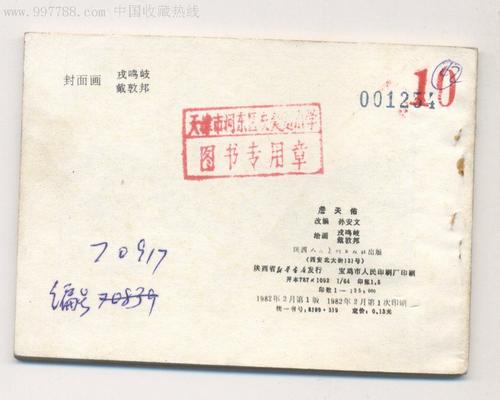 www.997788.com 中国收藏热线
封面画 戎鸣岐
戴敦邦
10
42
001234
天津市河东区
图书专用章
詹天佑
改编 孙安文
绘画 戎鸣岐
戴敦邦
陕西人民美术出版社出版
(西安北大街131号)
陕西省新华书店发行 宝鸡市人民印刷厂印刷
开本787×1092 1/64 印张1.5
1982年2月第1版 1982年2月第1次印刷
统一书号:8199·319 定价:0.13元
70917
编号 70839